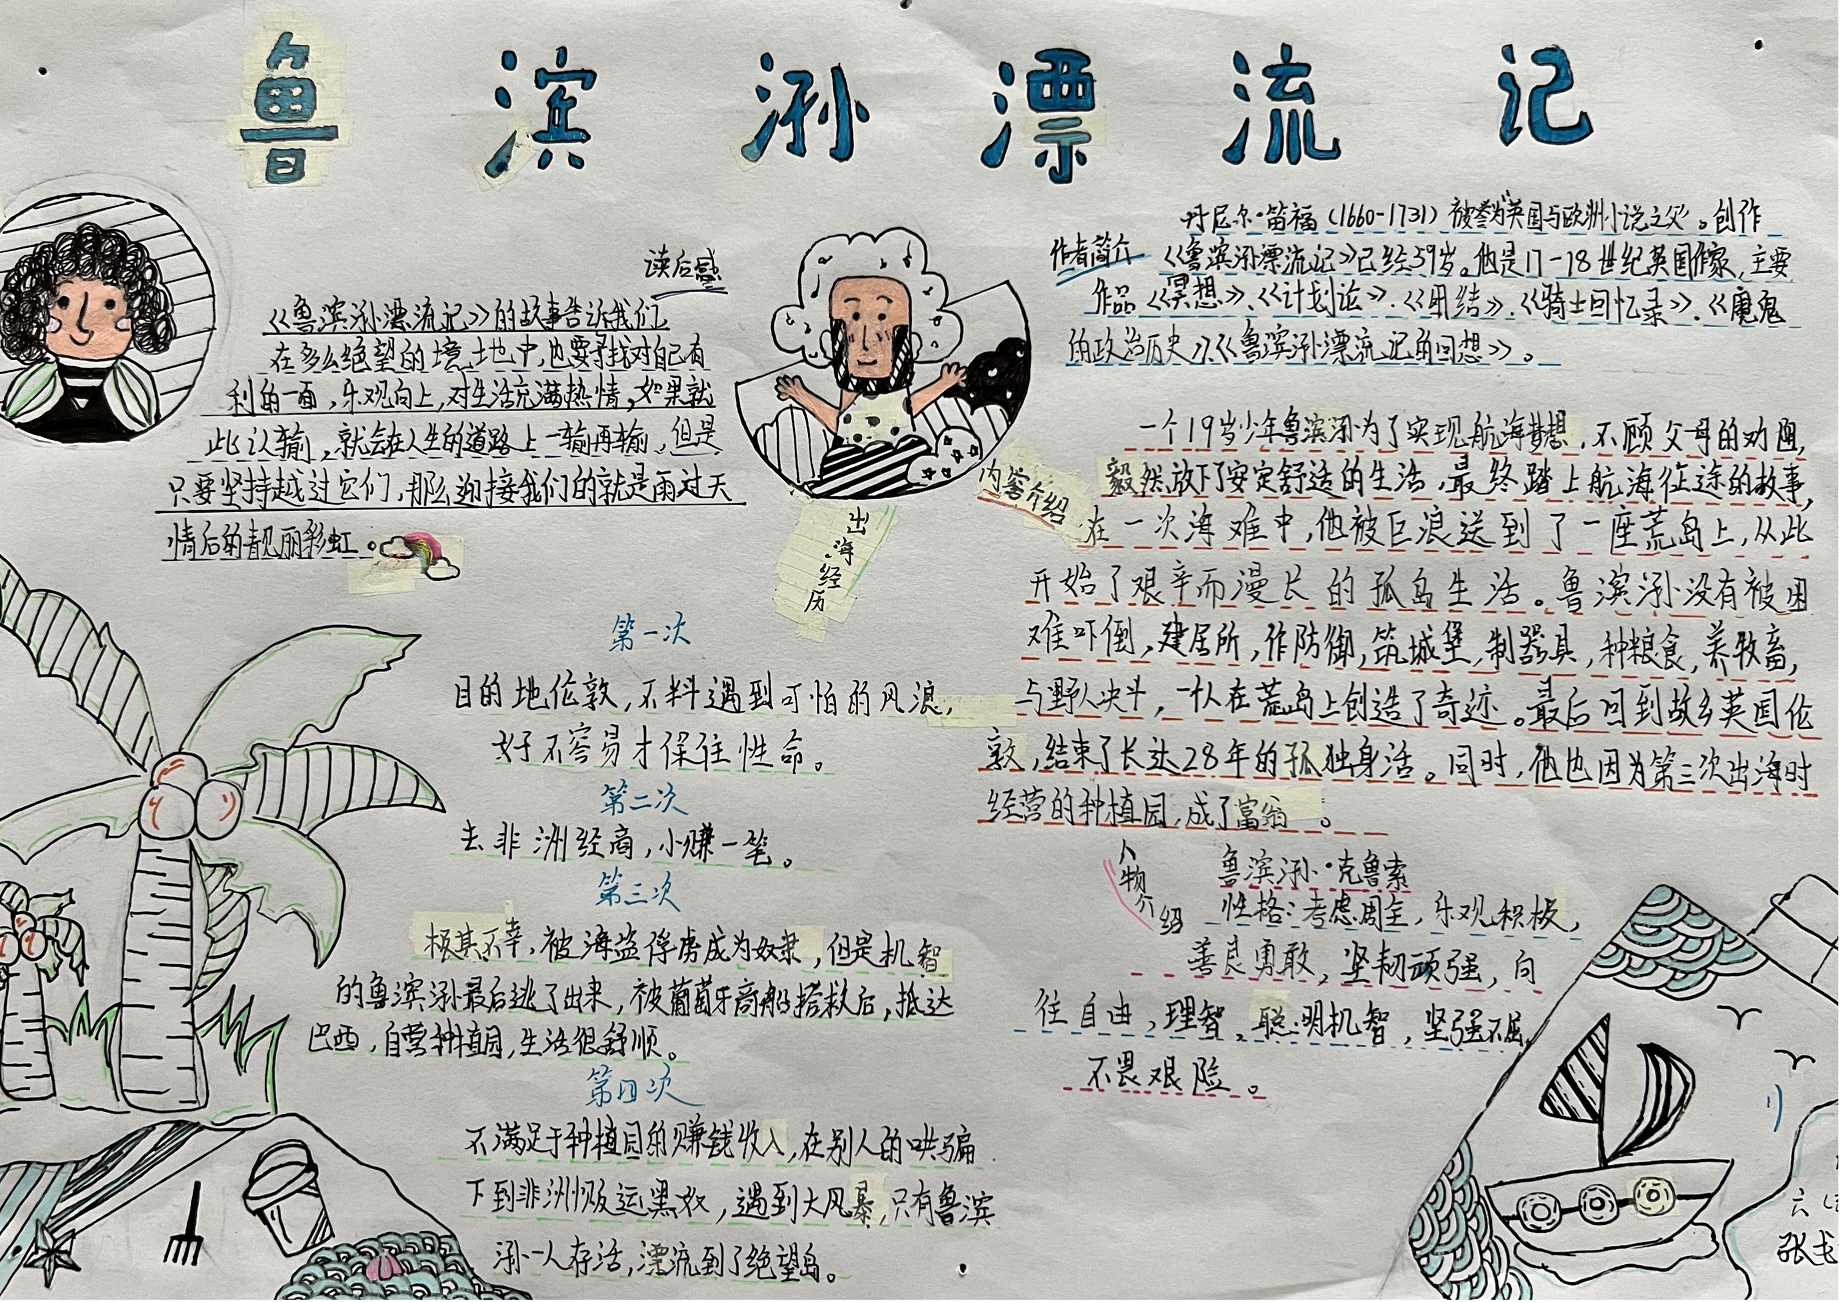 鲁滨泖漂流记
读后感
《鲁滨泖漂流记》的故事告诉我们,
在多么绝望的境地中,也要寻找对自己有
利的一面,乐观向上,对生活充满热情,如果就
此认输,就会在人生的道路上一输再输、但是
只要坚持越过它们,那么迎接我们的就是雨过天
情后的靓丽彩虹。
作者简介
丹尼尔·笛福(1660-1731)被誉为英国与欧洲小说之父。创作
《鲁滨泖漂流记》已经59岁。他是17-18世纪英国作家,主要
作品《冥想》、《计划论》、《团结》、《骑士回忆录》、《魔鬼
的政治历史》《鲁滨泖漂流记的回想》。
内容介绍
一个19岁少年鲁滨泖为了实现航海梦想,不顾父母的劝阻,
毅然放下安定舒适的生活,最终踏上航海征途的故事,
在一次海难中,他被巨浪送到了一座荒岛上,从此
开始了艰辛而漫长的孤岛生活。鲁滨泖没有被困
难吓倒,建居所,作防御,筑城堡,制器具,种粮食,养牧畜,
与野人决斗,一个人在荒岛上创造了奇迹。最后回到故乡英国伦
敦,结束了长达28年的孤独身活。同时,他也因为第三次出海时
经营的种植园,成了富翁。
出海经历
第一次
目的地伦敦,不料遇到可怕的风浪,
好不容易才保住性命。
第二次
去非洲经商,小赚一笔。
第三次
极其不幸,被海盗俘虏成为奴隶,但是机智
的鲁滨泖最后逃了出来,被葡萄牙商船拾救后,抵达
巴西,自营种植园,生活很舒顺。
第四次
不满足于种植园的赚钱收入,在别人的哄骗
下到非洲贩运黑奴,遇到大风暴,只有鲁滨
泖一人存活,漂流到了绝望岛。
人物介绍
鲁滨泖·克鲁索
性格:考虑周全,乐观积极,
善良勇敢,坚韧顽强,向
往自由,理智,聪明机智,坚强不屈,
不畏艰险。
六
张